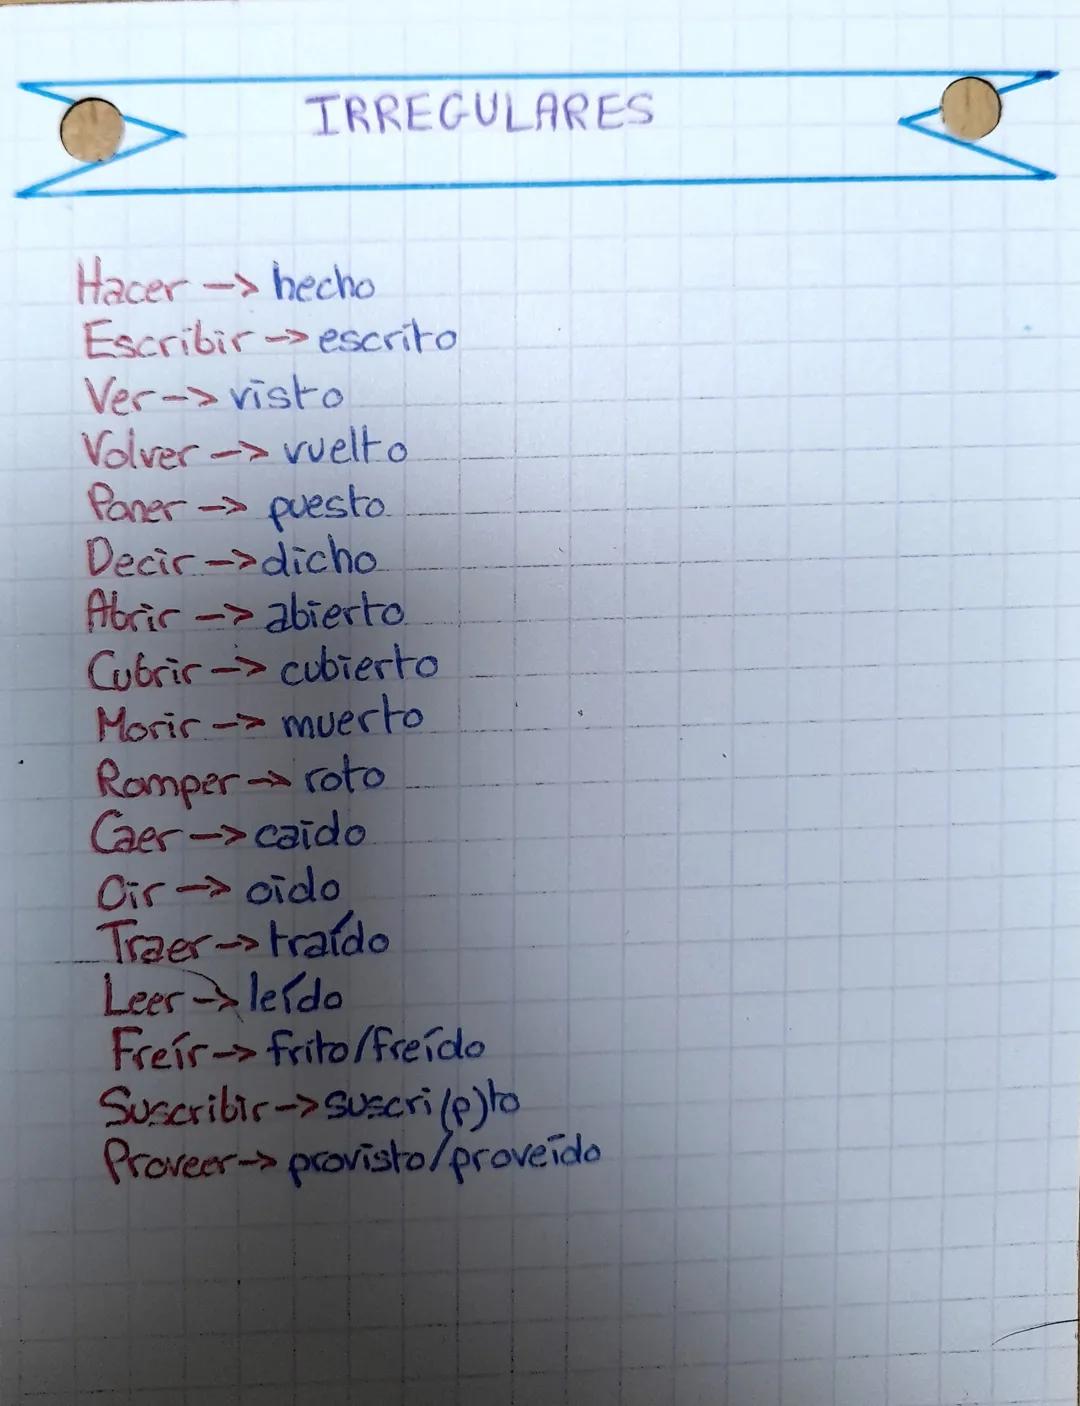 IRREGULARES
Hacer -> hecho
Escribir -> escrito
Ver -> visto
Volver -> vuelto
Poner -> puesto
Decir -> dicho
Abrir -> abierto
Cubrir -> cubierto
Morir -> muerto
Romper -> roto
Caer -> caído
Oir -> oído
Traer -> traído
Leer -> leído
Freír -> frito/freído
Suscribir -> suscri(p)to
Proveer -> provisto/proveído